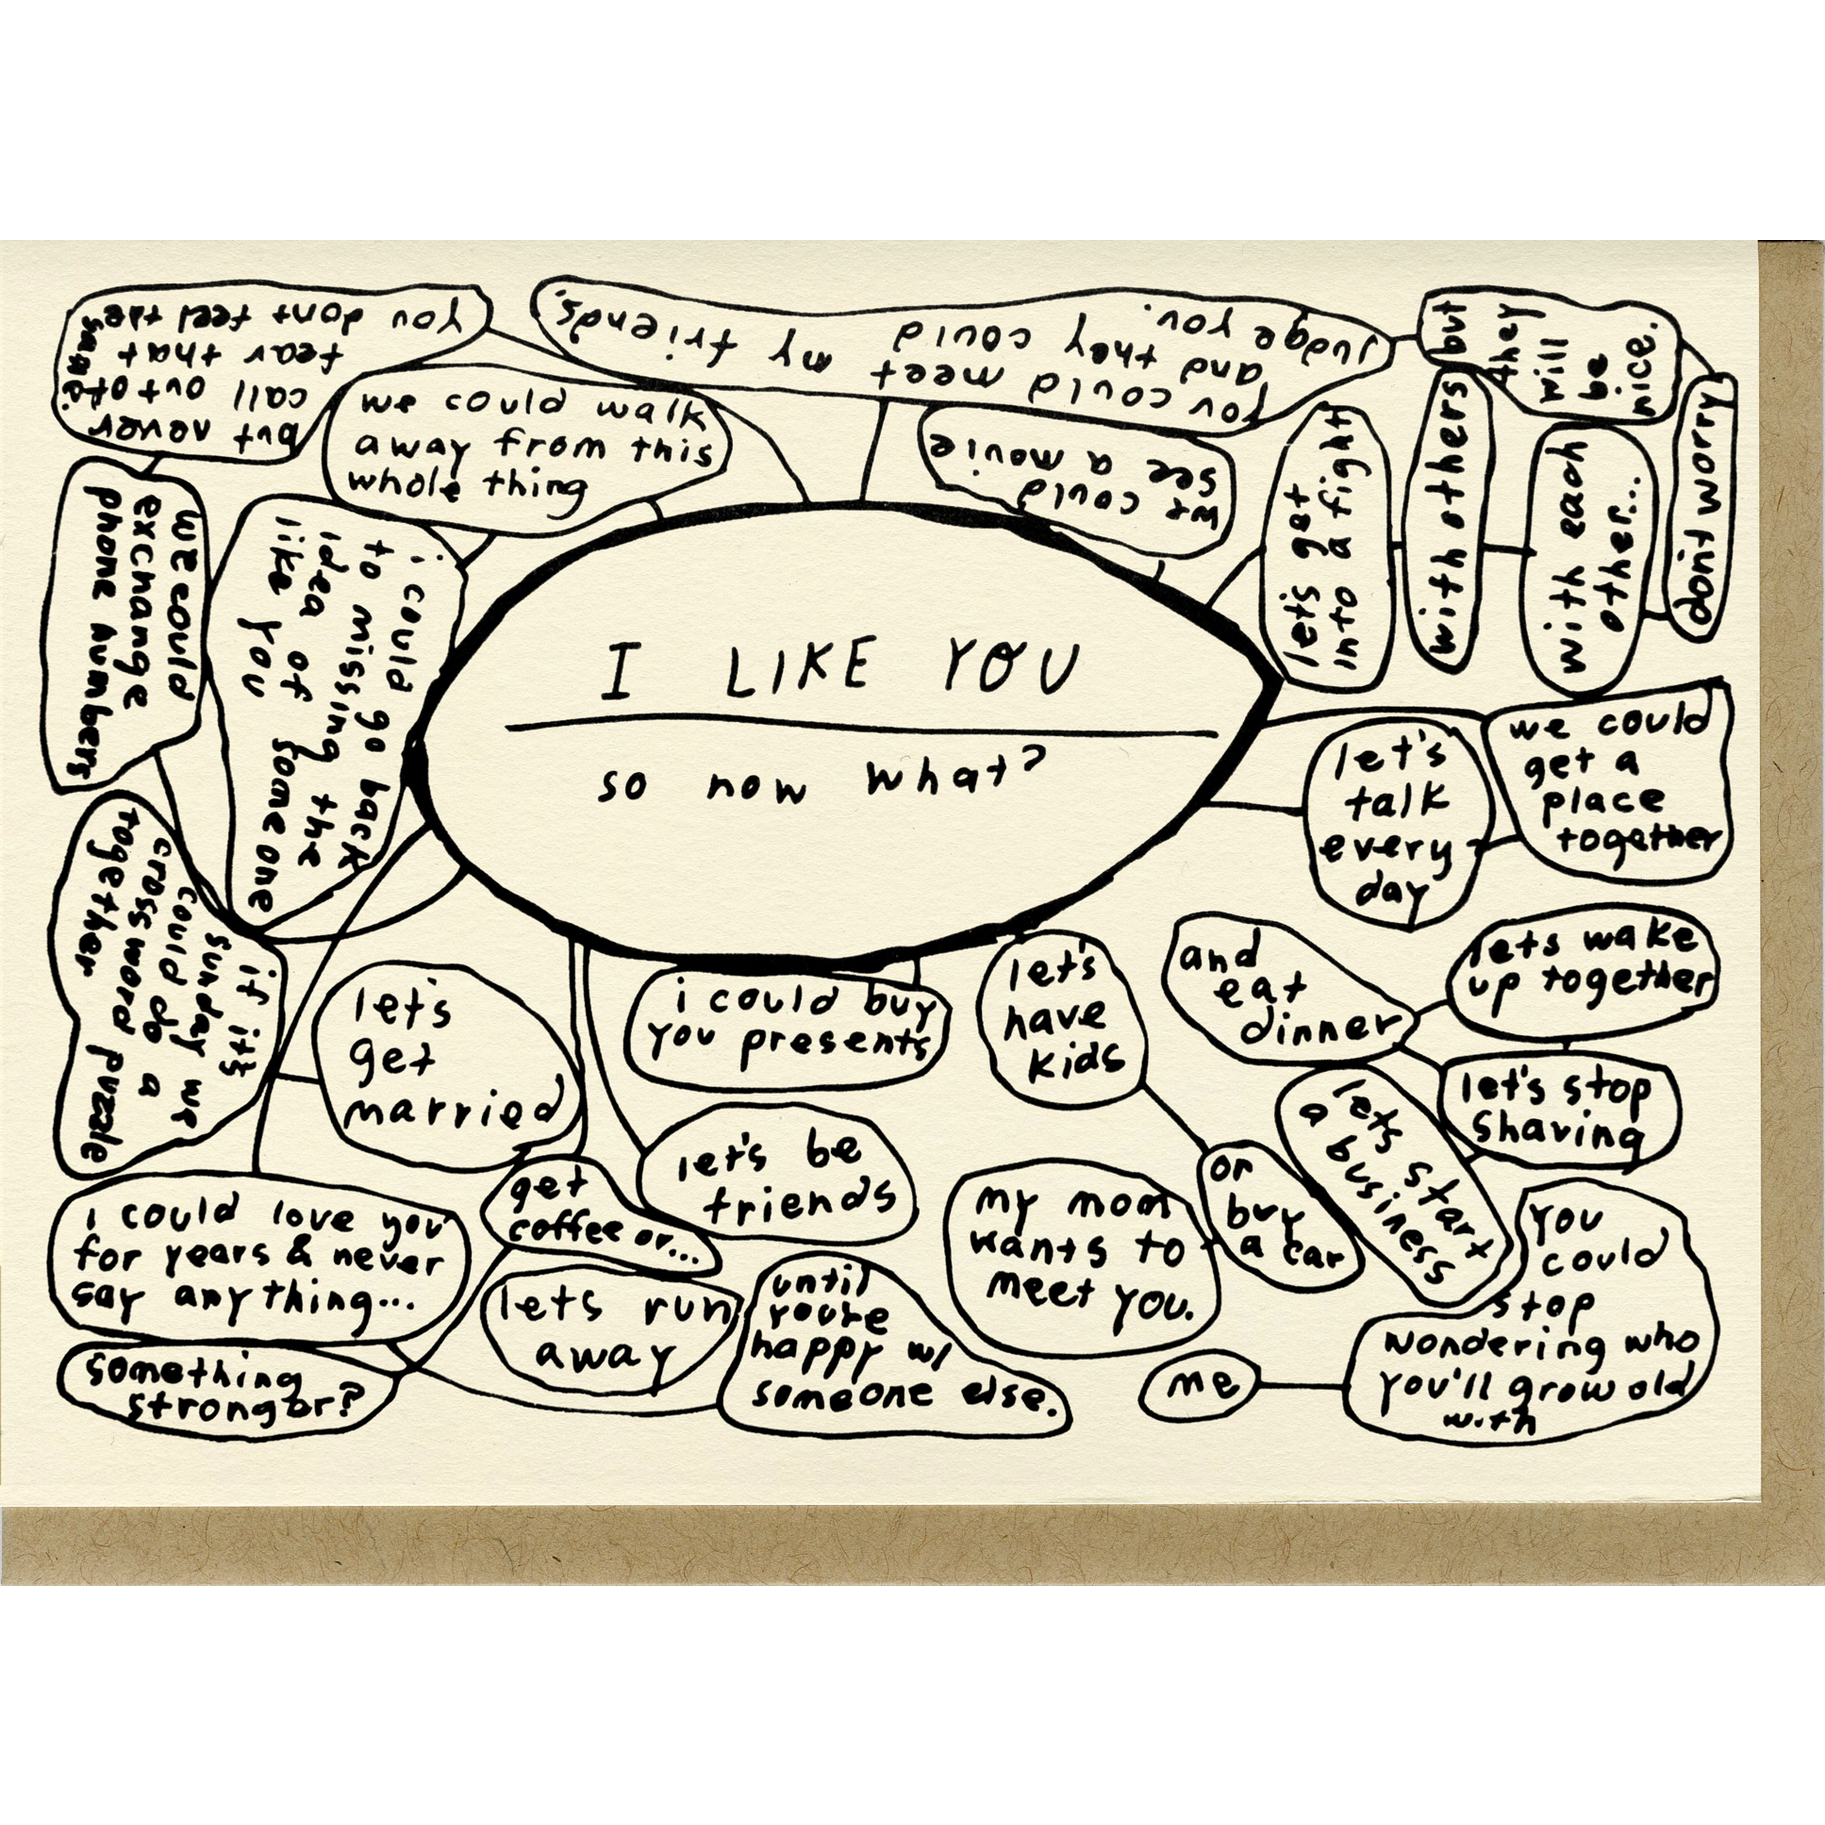 I LIKE YOU
so now what?
you dont feel the
same
fear that
call out of
but never
we could walk
away from this
whole thing
you could meet my friends.
and they could
judge you.
but
they
will
be
nice.
don't worry
with each
other...
with others
let's get
into a fight
we could
see a movie
we could
exchange
phone numbers
i could go back
to missing the
idea of someone
like you
if it's
sunday we
could do a
crossword puzzle
together
let's
talk
every
day
we could
get a
place
together
lets wake
up together
and
eat
dinner
let's stop
shaving
lets start
a business
let's
have
kids
or
buy
a car
my mom
wants to
meet you.
i could buy
you presents
let's be
friends
let's
get
married
get
coffee or...
i could love you
for years & never
say anything...
something
stronger?
lets run
away
until
you're
happy w/
someone else.
you
could
stop
wondering who
you'll grow old
with
me